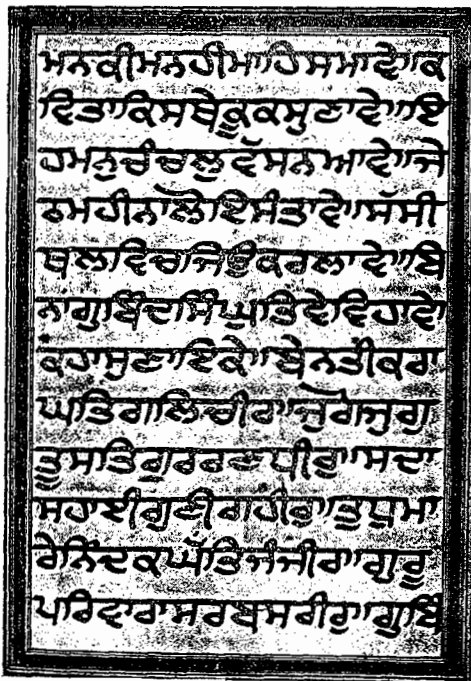 ਮਨਕੀਮਨਹੀਮਾਹਿਸਮਾਵੇ॥ਕ
ਵਿਤਾਕਿਸਥੇਕੂਕਸੁਣਾਵੇ॥ਇ
ਹਮਨੁਚੰਚਲੁਵੱਸਨਆਵੇ॥ਜੇ
ਠਮਹੀਨਾਲੋਇਸੰਤਾਵੇ॥ਸੱਸੀ
ਥਲਵਿਚਜਿਉਕਰਲਾਵੇ॥ਬਿ
ਨਾਗੁਬਿੰਦਸਿੰਘੁਤਿਵੇਵਿਹਾਵੇ॥
ਕਹਾਸੁਣਾਇਕੇ॥ਬੇਨਤੀਕਰਾ
ਘਤਿਗਲਿਚੀਰਾ॥ਜੁਗੋਜੁਗੁ
ਤੂਸਤਿਗੁਰਰਣਧੀਰਾ॥ਸਦਾ
ਸਹਾਈਗੁਣੀਗਹੀਰਾ॥ਤੁਧੁਮਾ
ਰੇਨਿੰਦਕਘੱਤਿਜੰਜੀਰਾ॥ਗੁਰੂ
ਪਰਿਵਾਰਾਸਰਬਸਰੀਰਾ॥ਗੁਬਿੰ